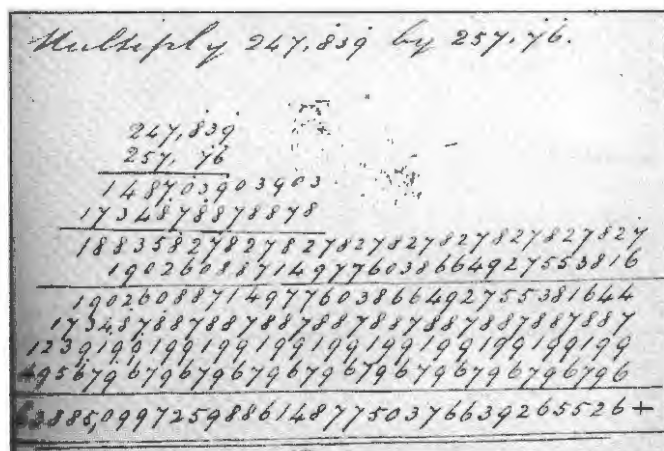 Multiply 247,8̇39̇ by 257,7̇6̇.
247,8̇39̇
257, 7̇6̇
148703903903
1734878878878
188358278278278278278278278278
190260887149776038664927553816
19026088714977603866492755381644
173487887887887887887887887887887
1239199199199199199199199199199199
4956796796796796796796796796796796
3885,09972598861487750376639265526+